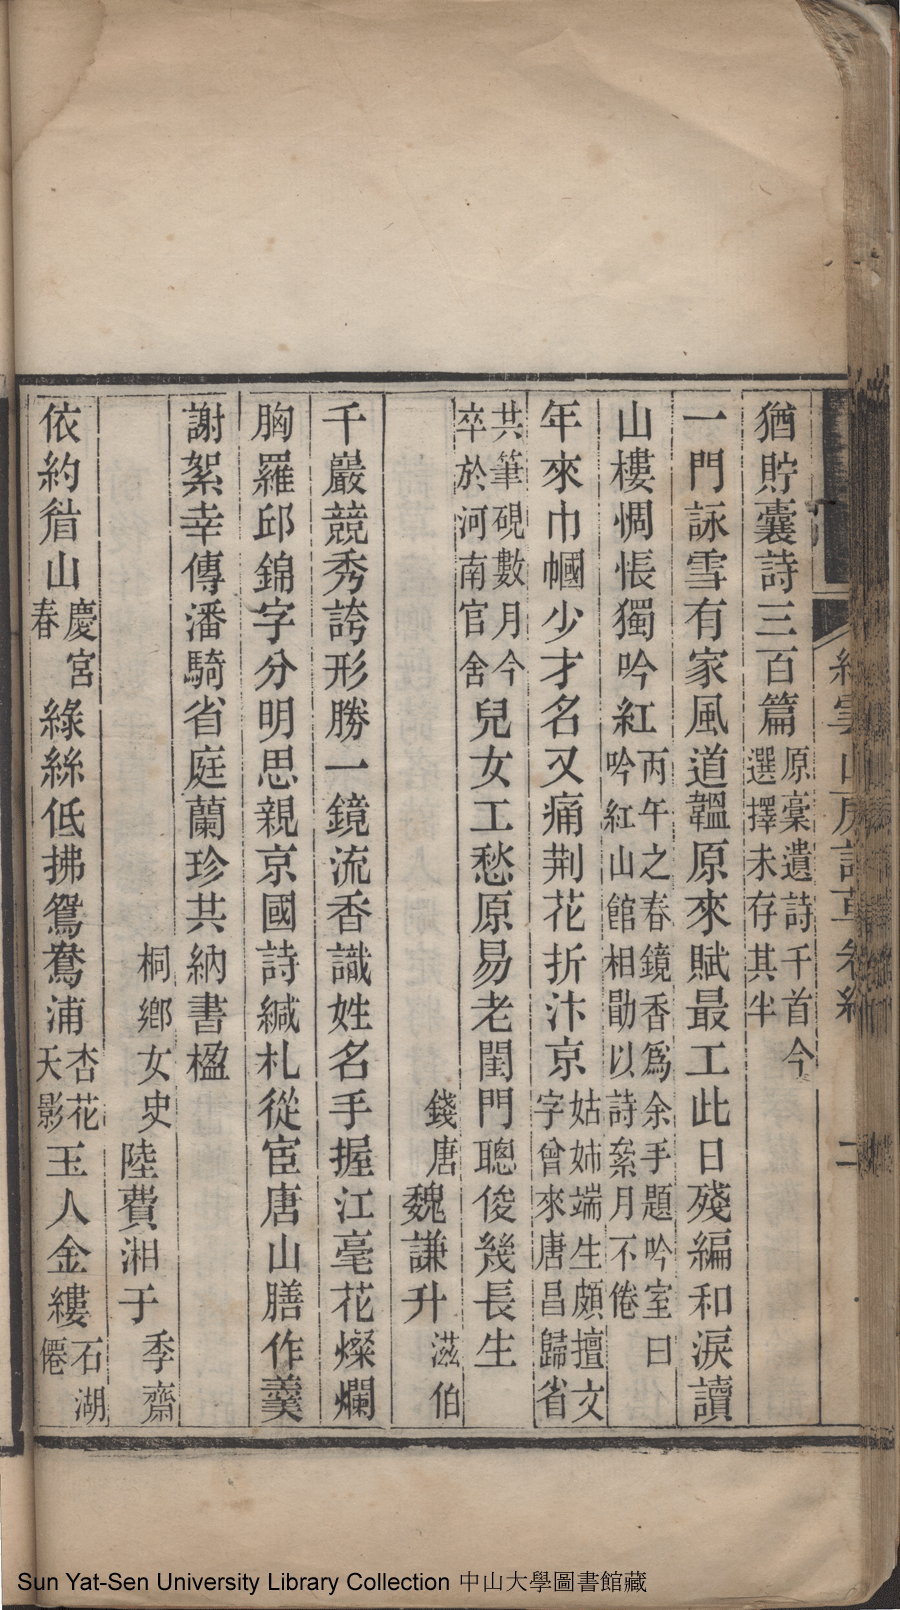 猶貯囊詩三百篇原稾遺詩千首今選擇未存其半
一門詠雪有家風道韞原來賦最工此日殘編和淚讀
山樓惆悵獨吟紅丙午之春鏡香爲余手題吟室曰吟紅山館相勖以詩絫月不倦
年來巾幗少才名又痛荆花折汴京姑姊端生頗擅文字曾來唐昌歸省
共筆硯數月今卒於河南官舍兒女工愁原易老閨門聰俊幾長生
錢唐魏謙升滋伯
千巖競秀誇形勝一鏡流香識姓名手握江毫花燦爛
胸羅邱錦字分明思親京國詩緘札從宦唐山膳作羹
謝絮幸傳潘騎省庭蘭珍共納書楹
桐鄉女史陸費湘于季齋
依約眉山慶宮春綠絲低拂鴛鴦浦杏花天影玉人金縷石湖僊
山房詩草 二
Sun Yat-Sen University Library Collection 中山大學圖書館藏